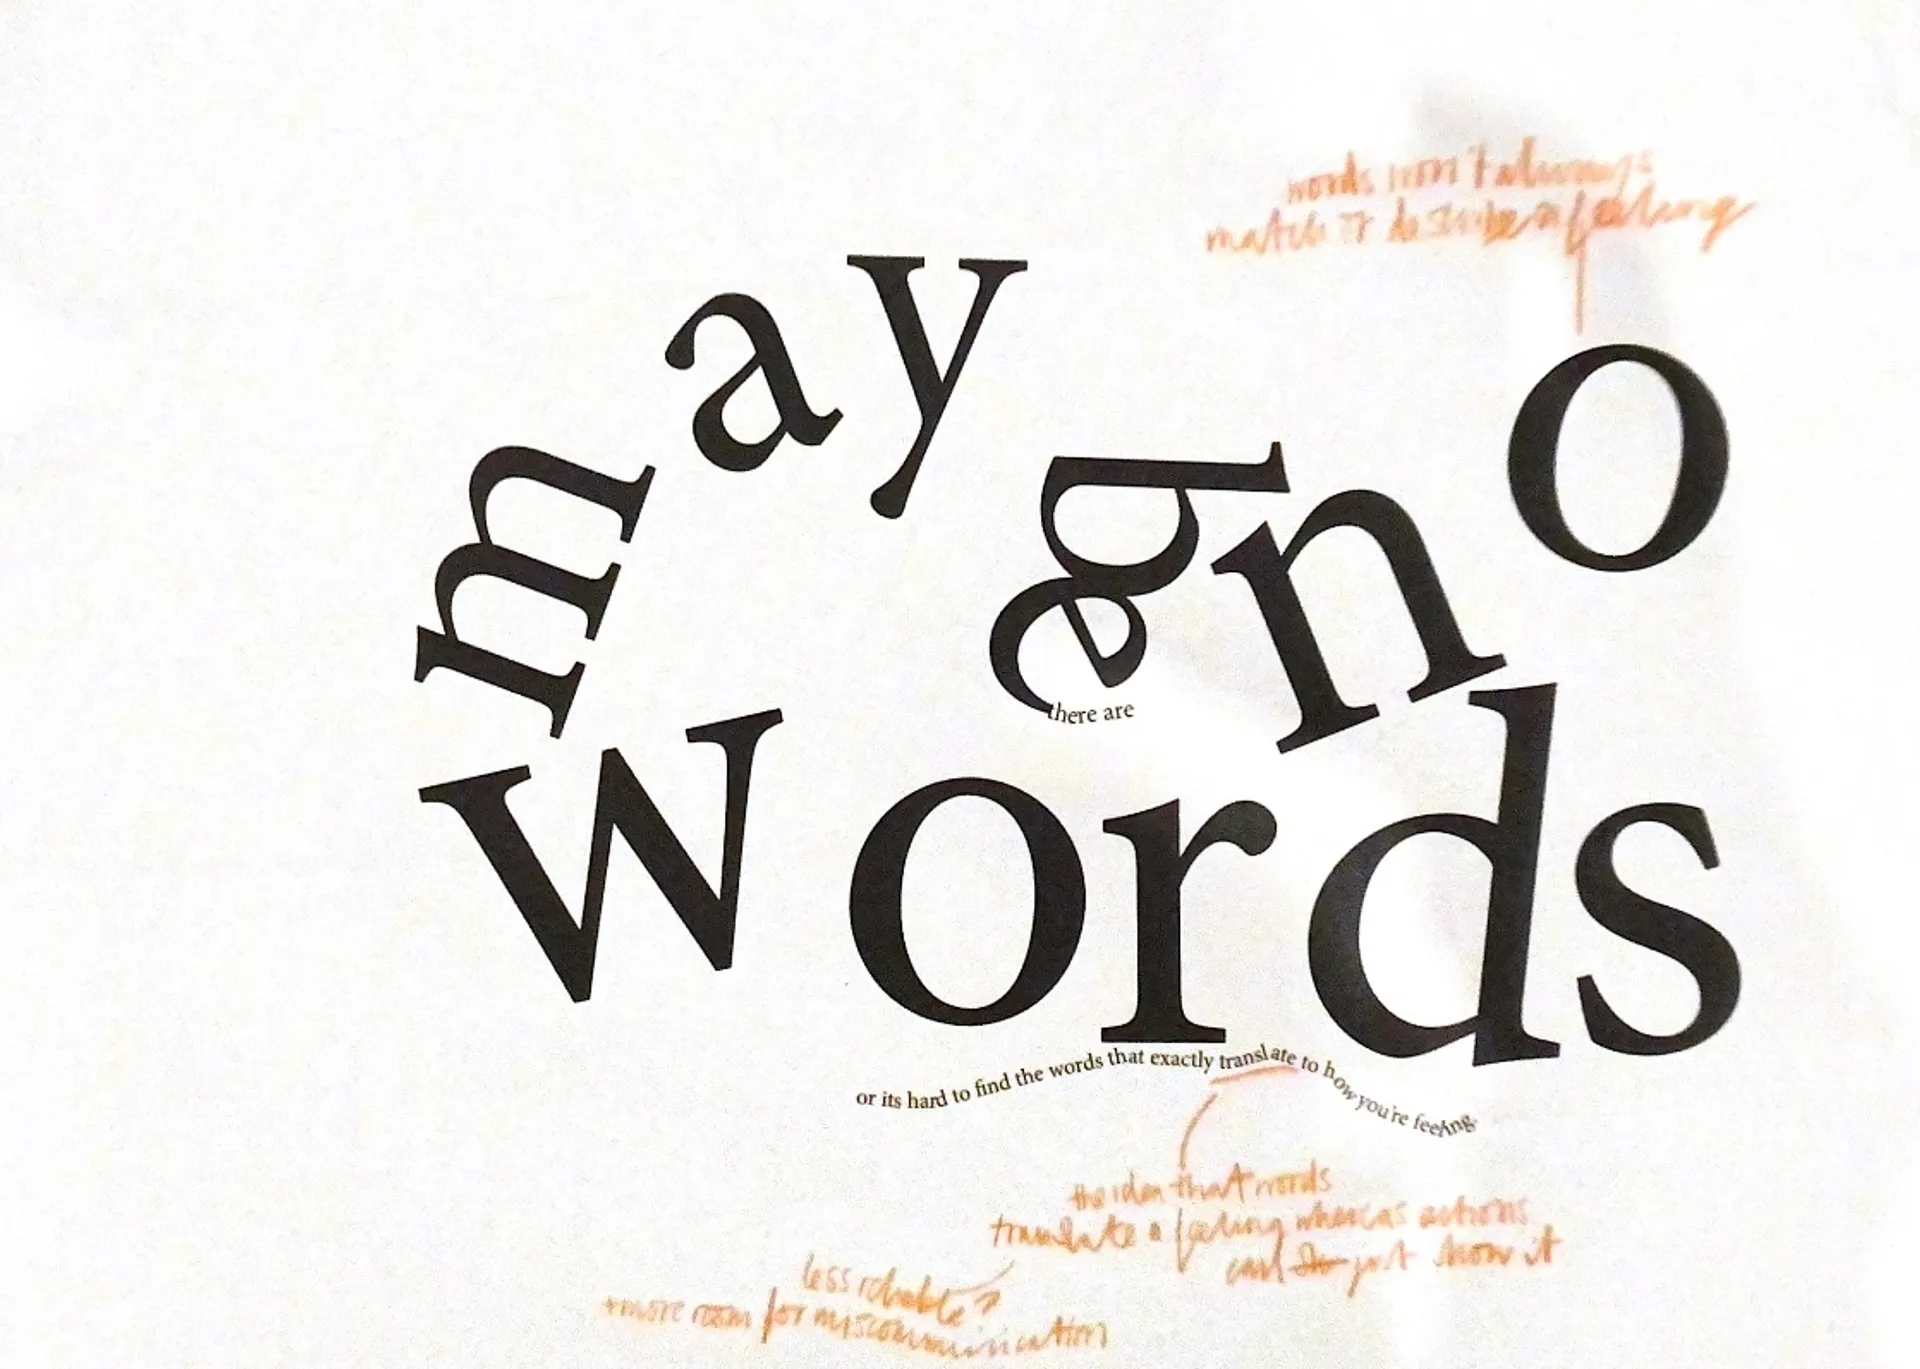 words won't always
match or describe a feeling
may
be no
there are
words
or its hard to find the words that exactly translate to how you're feeling.
the idea that words
translate a feeling whereas actions
can just show it
less reliable?
+more room for miscommunication